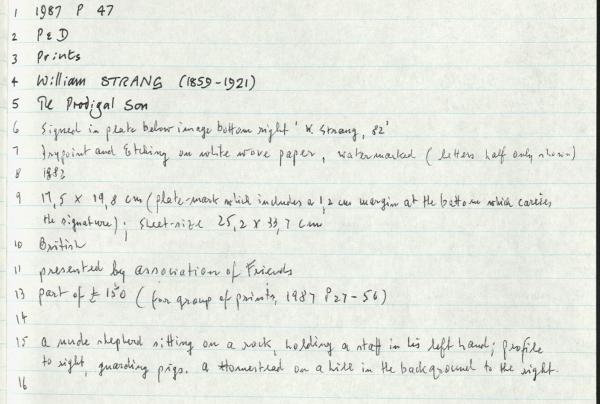 1 1987 P 47
2 P & D
3 Prints
4 William STRANG (1859-1921)
5 The Prodigal Son
6 Signed in plate below image bottom right 'W Strang, 82'
7 Drypoint and Etching on white wove paper, watermarked (letters half only shown)
8 1882
9 17,5 x 19,8 cm (plate-mark which includes a 1,2 cm margin at the bottom which carries
the signature); sheet-size 25,2 x 33,7 cm
10 British
11 presented by association of Friends
13 part of £ 150 (for group of prints, 1987 P27-56)
14
15 a nude shepherd sitting on a rock, holding a staff in his left hand; profile
to right, guarding pigs. a Homestead on a hill in the background to the right.
16